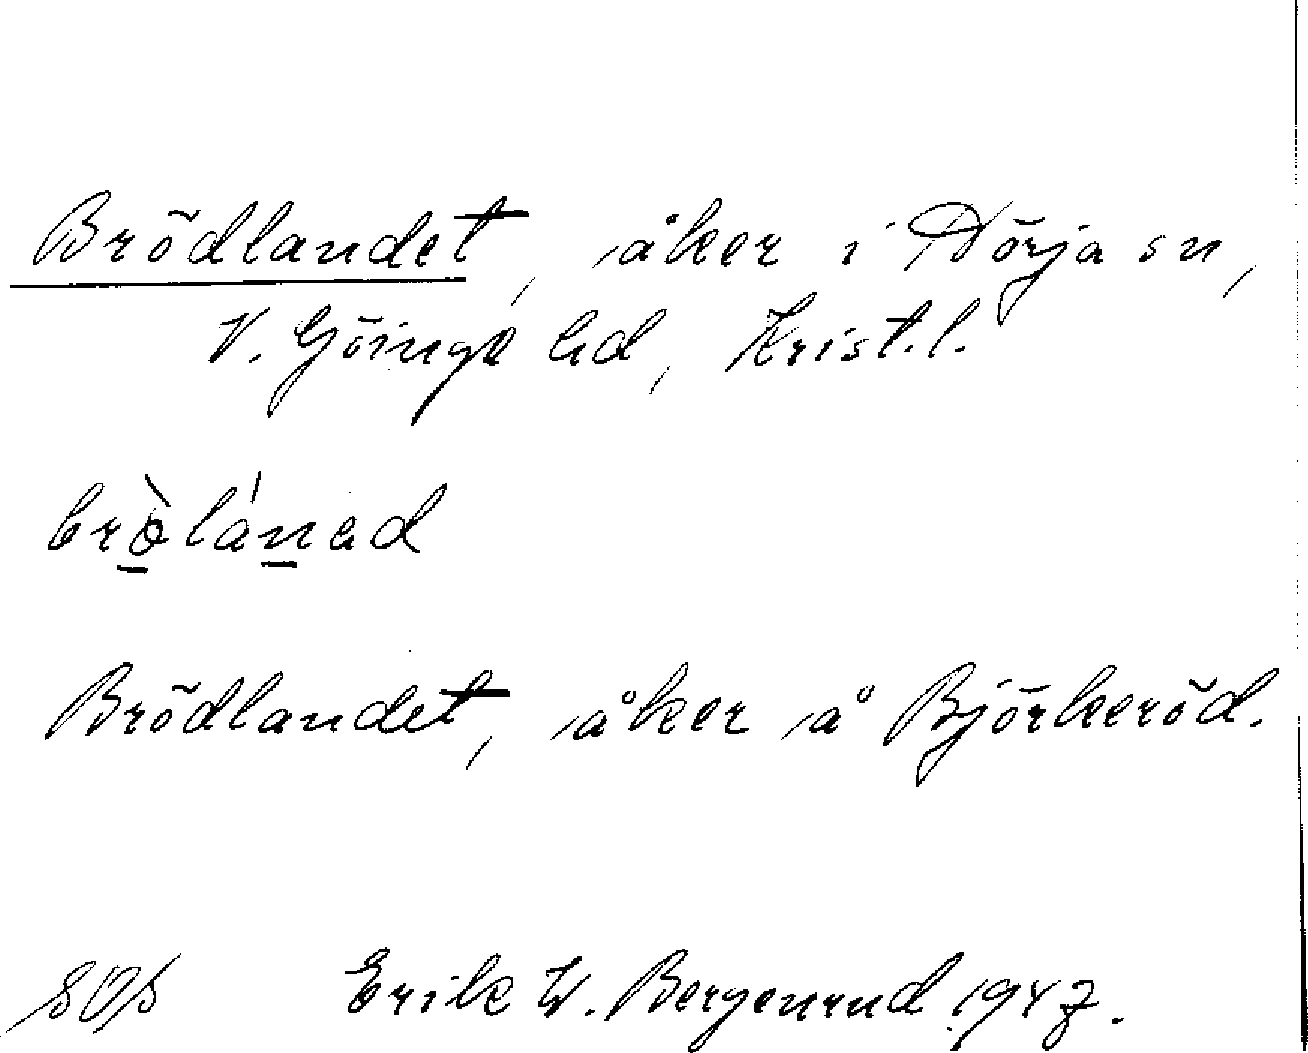 Brödlandet, åker i Nörja sn,
V. Göinge hd, Krist.l.
brò̱láṉad
Brödlandet, åker å Björkeröd.
Erik W. Bergenrud 1947.